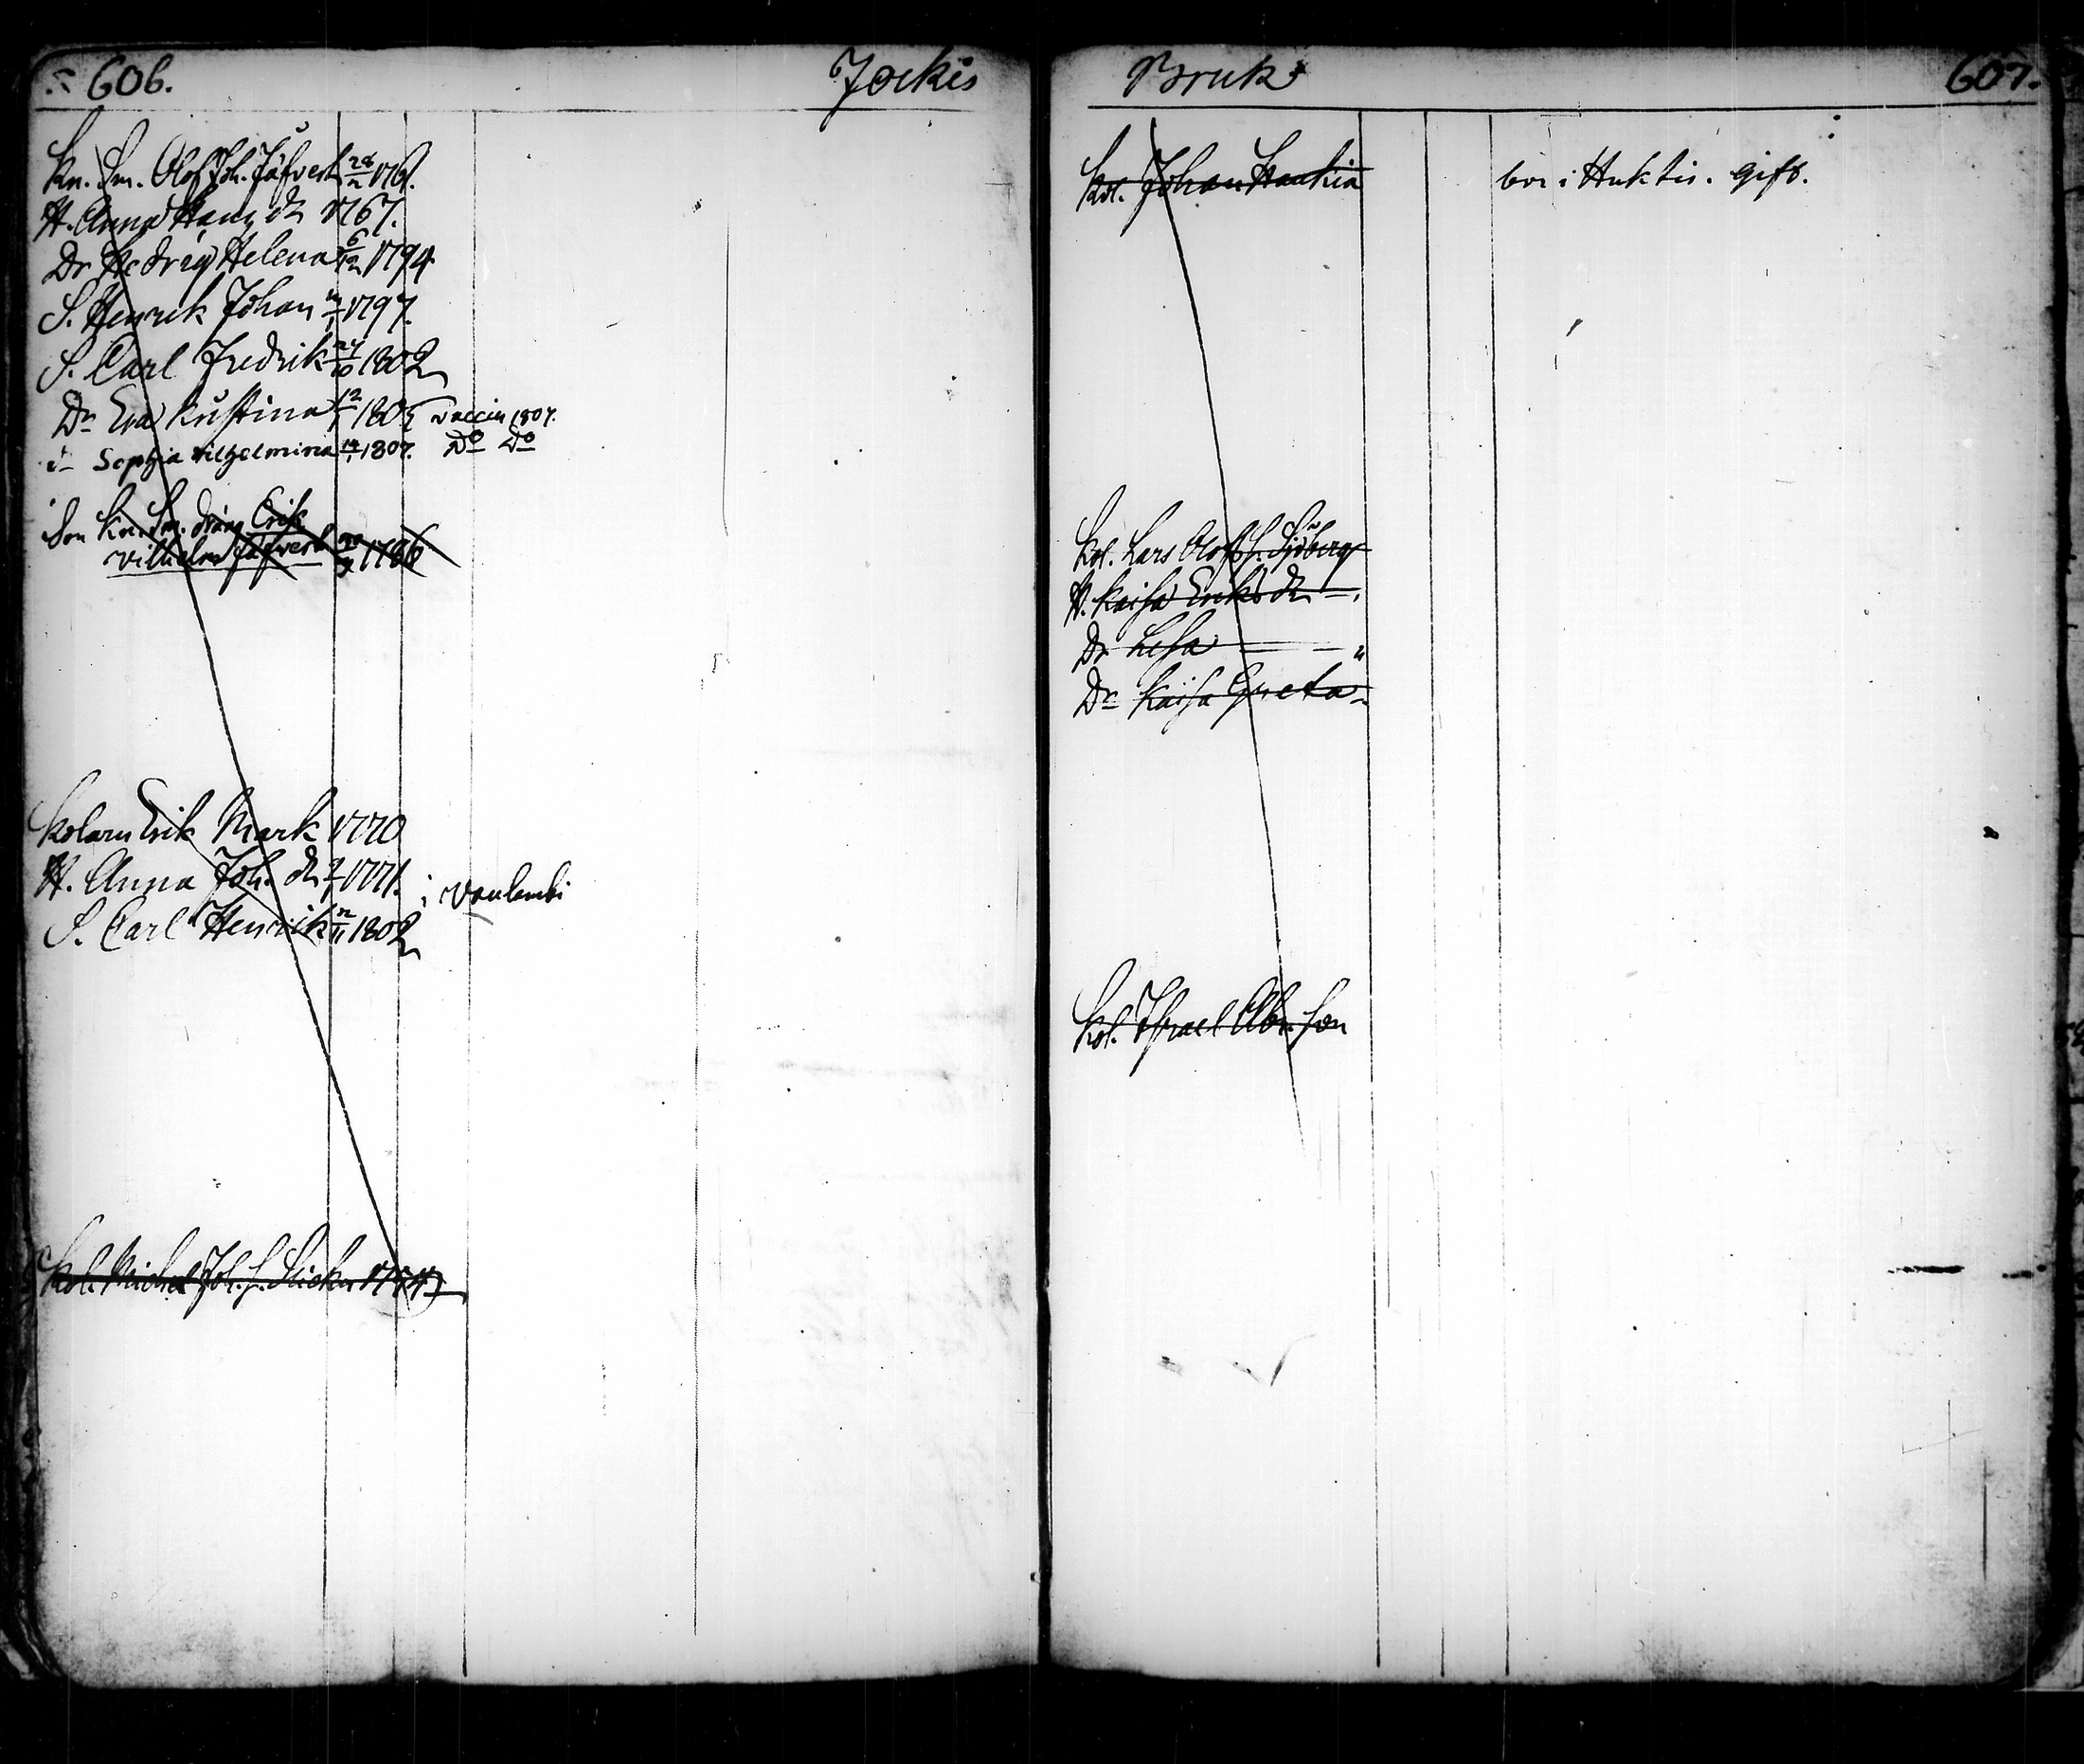 606. Jockis
Kn. Sm. Olof Joh. Jäfvert 28/2 1761.
H. Anna Hans dr 1767.
Dr Hedvig Helena 6/12 1794
S. Henrik Johan 1797.
S. Carl Fredrik 24/10 1802
Dr Eva Kristina 12/1 1805 vaccin 1807.
d- Sophia Vilhelmina 19/1 1807. Do Do
Son Kn. Sm. dräng Erik
Vilhelm Jäfvert 1786
Kolarn Erik Mark 1770
H. Anna Joh. dr 1771.
i Vaulambi
S. Carl Henrik 11 1802
Kol. Michel Joh. S.
Bruk 607.
Kol. Johan bor i Huktis. gift.
Kol. Lars Olofs S. Sjöberg
H. Kaisa Eriks dr
Dr Lisa "
Dr Kaisa Greta
Kol. Israel Abr. Son